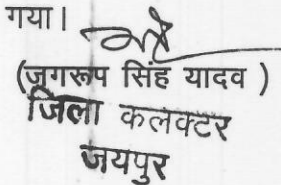 गया।
(जगरूप सिंह यादव )
जिला कलक्टर
जयपुर